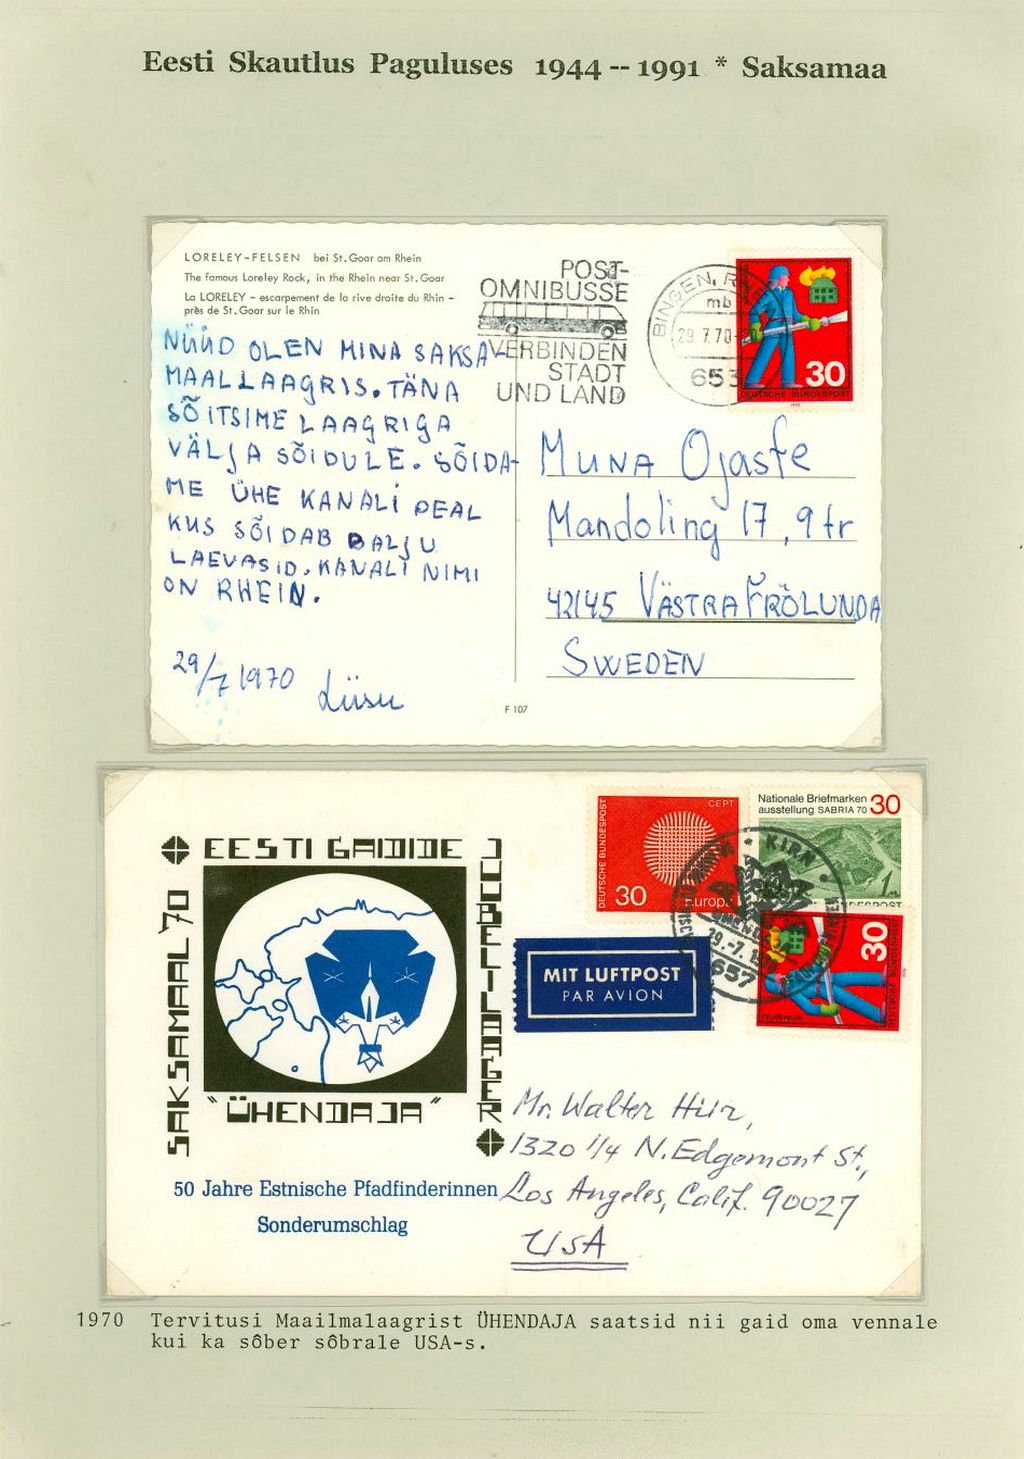 Eesti Skautlus Paguluses 1944 -- 1991 * Saksamaa
LORELEY-FELSEN bei St. Goar am Rhein
The famous Loreley Rock, in the Rhein near St. Goar
La LORELEY - escarpement de la rive droite du Rhin -
près de St. Goar sur le Rhin
POST-
OMNIBUSSE
VERBINDEN
STADT
UND LAND
BINGEN, R
mb
29.7.70-20
653
30
DEUTSCHE BUNDESPOST
NÜÜD OLEN MINA SAKSA-
MAAL LAAGRIS. TÄNA
SÕITSIME LAAGRIGA
VÄLJA SÕIDULE. SÕIDA-
ME ÜHE KANALI PEAL
KUS SÕIDAB PALJU
LAEVASID. KANALI NIMI
ON RHEIN.
29/7 1970 Liisu
MUNA Ojaste
Mandoling 17, 9 tr
42145 VÄSTRA FRÖLUNDA
SWEDEN
F 107
EESTI GAIDIDE
JUUBELILAAGER
SAKSAMAAL '70
"ÜHENDAJA"
50 Jahre Estnische Pfadfinderinnen
Sonderumschlag
CEPT
DEUTSCHE BUNDESPOST
30
Europa
Nationale Briefmarken 30
ausstellung SABRIA 70
KIRN
29.-7.
657
30
DEUTSCHE BUNDESPOST
MIT LUFTPOST
PAR AVION
Mr. Walter Hiir,
1320 1/4 N. Edgemont St.,
Los Angeles, Calif. 90027
USA
1970 Tervitusi Maailmalaagrist ÜHENDAJA saatsid nii gaid oma vennale
kui ka sôber sôbrale USA-s.